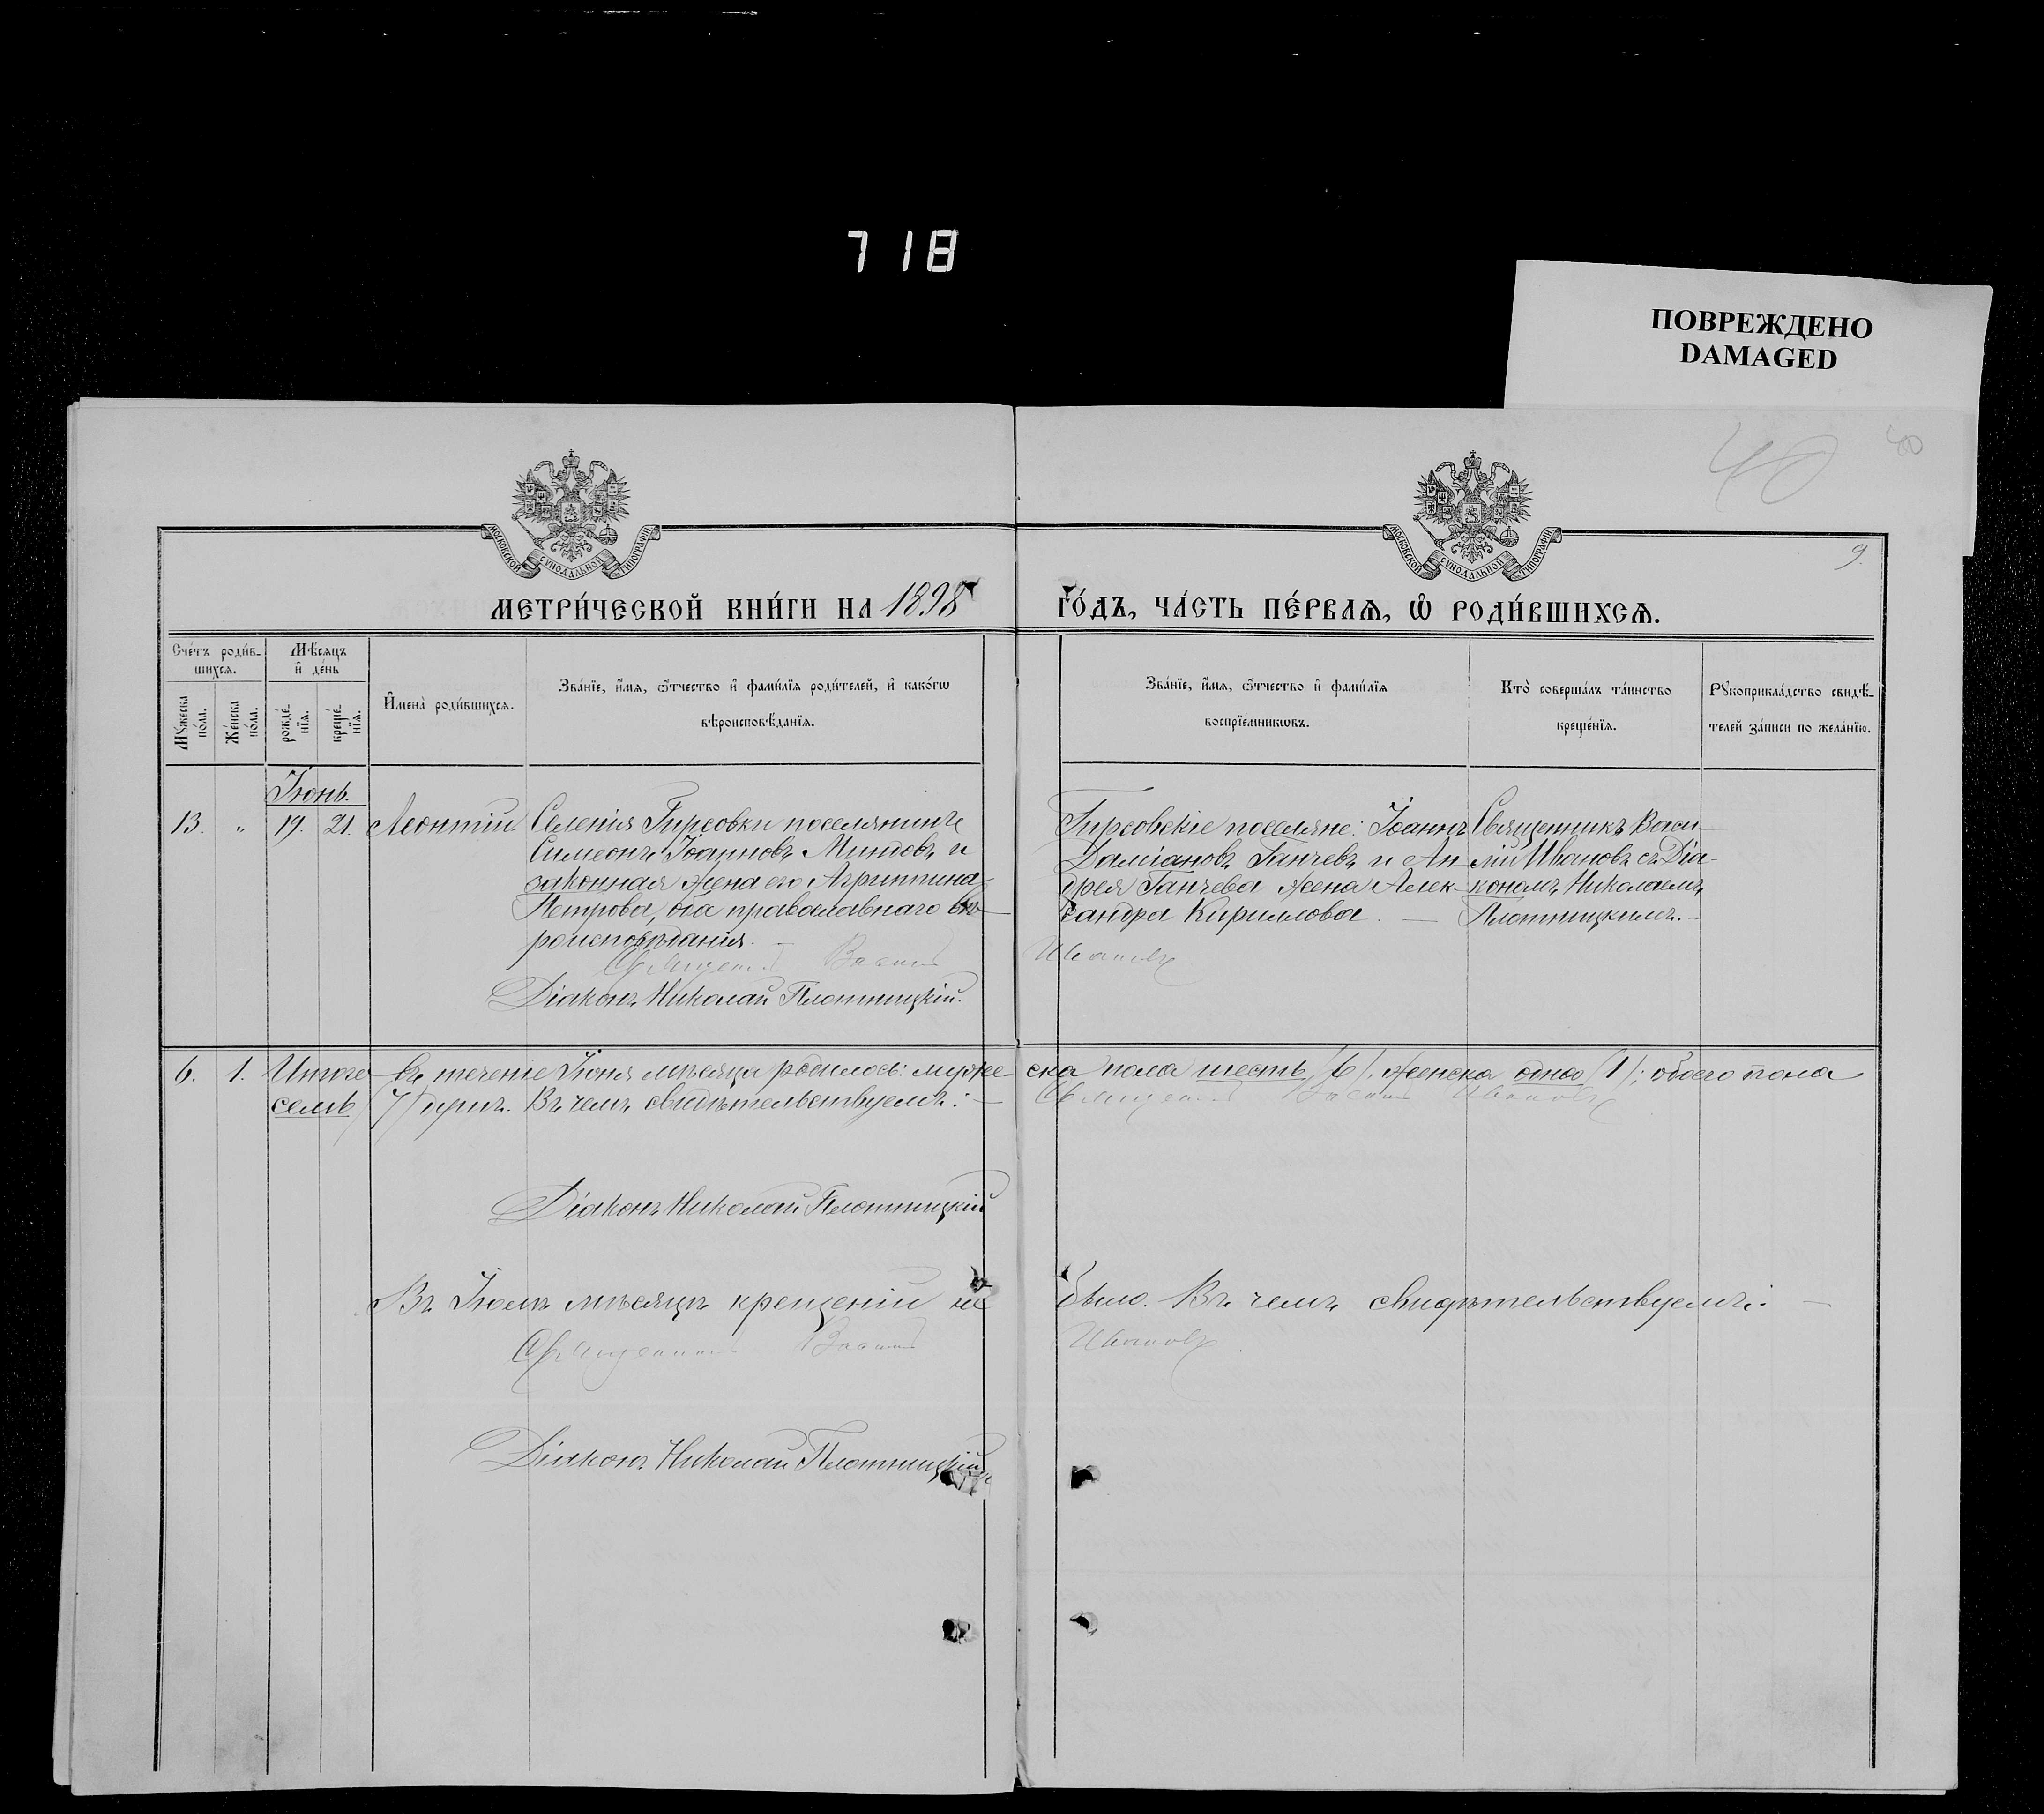 718
ПОВРЕЖДЕНО
DAMAGED
40
9.
МОСКОВСКОЙ СѴНОДАЛЬНОЙ ТИПОГРАФІИ
МОСКОВСКОЙ СѴНОДАЛЬНОЙ ТИПОГРАФІИ
МЕТРИ́ЧЕСКОЙ КНИ́ГИ НА 1898
ГО́ДЪ, ЧА́СТЬ ПЕ́РВАѦ, Ѡ҆ РОДИ́ВШИХСѦ.
Сче́тъ роди́в-
шихсѧ.
Мꙋ́жеска по́ла.
Же́нска по́ла.
Мѣ́сѧцъ
и҆ де́нь
рожде́-
нїѧ.
креще́-
нїѧ.
И҆мена̀ роди́вшихсѧ.
Зва́нїе, и҆́мѧ, ѻ҆́тчество и҆ фами́лїѧ роди́телей, и҆ како́гѡ
вѣроисповѣ́данїѧ.
Зва́нїе, и҆́мѧ, ѻ҆́тчество и҆ фами́лїѧ
воспрїе́мникѡвъ.
Кто̀ соверша́лъ та́инство
креще́нїѧ.
Рꙋкоприкла́дство свидѣ́-
телей за́писи по жела́нїю.
Іюнь.
13. „ 19. 21. Леонтій.
Селенія Гирсовки поселянинъ
Симеонъ Іоанновъ Миндовъ и
законная жена его Агриппина
Петрова, оба православнаго вѣ-
роисповѣданія. —
Гирсовскіе поселяне: Іоаннъ
Даміановъ Ганчевъ и Ан
дрея Ганчева жена Алек-
сандра Кириллова. —
Священникъ Васи-
лій Ивановъ съ Діа-
кономъ Николаемъ
Плотницкимъ. —
Священникъ Василій Ивановъ
Діаконъ Николай Плотницкій.
6. 1. Итого въ теченіе Іюня мѣсяца родилось: муже- ска пола шесть /6/, женска одна /1/; обоего пола
семь /7/ душъ. Въ чемъ свидѣтельствуемъ: — Священникъ Василій Ивановъ
Діаконъ Николай Плотницкій
Въ Іюлѣ мѣсяцѣ крещеній не было. Въ чемъ свидѣтельствуемъ: —
Священникъ Василій Ивановъ
Діаконъ Николай Плотницкій